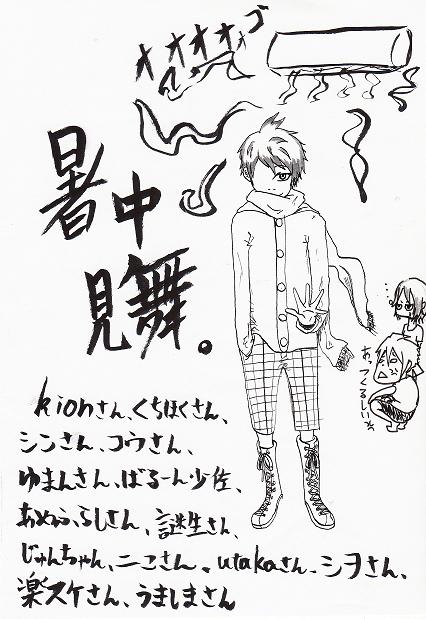 オオオオゴ
暑中
見舞。
あっくるしい
kionさん、くちほくさん、
シンさん、コウさん、
ゆまんさん、ばるーん少佐、
あめふらしさん、謎生さん、
じゅんちゃん、ニコさん、utakaさん、シヲさん、
楽スケさん、うましまさん